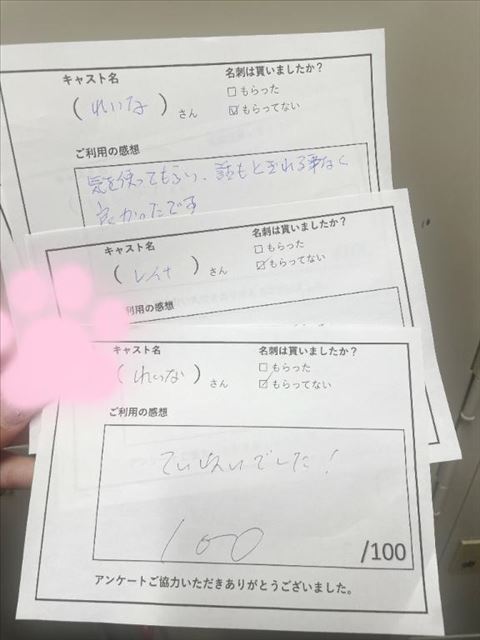 キャスト名
名刺は貰いましたか？
(れいな)さん
□もらった
☑もらってない
ご利用の感想
気を使ってもらい、話もとぎれる事なく
良かったです
キャスト名
名刺は貰いましたか？
(レイナ)さん
□もらった
☑もらってない
利用の感想
キャスト名
名刺は貰いましたか？
(れいな)さん
□もらった
☑もらってない
ご利用の感想
ていねいでした！
100
/100
アンケートご協力いただきありがとうございました。